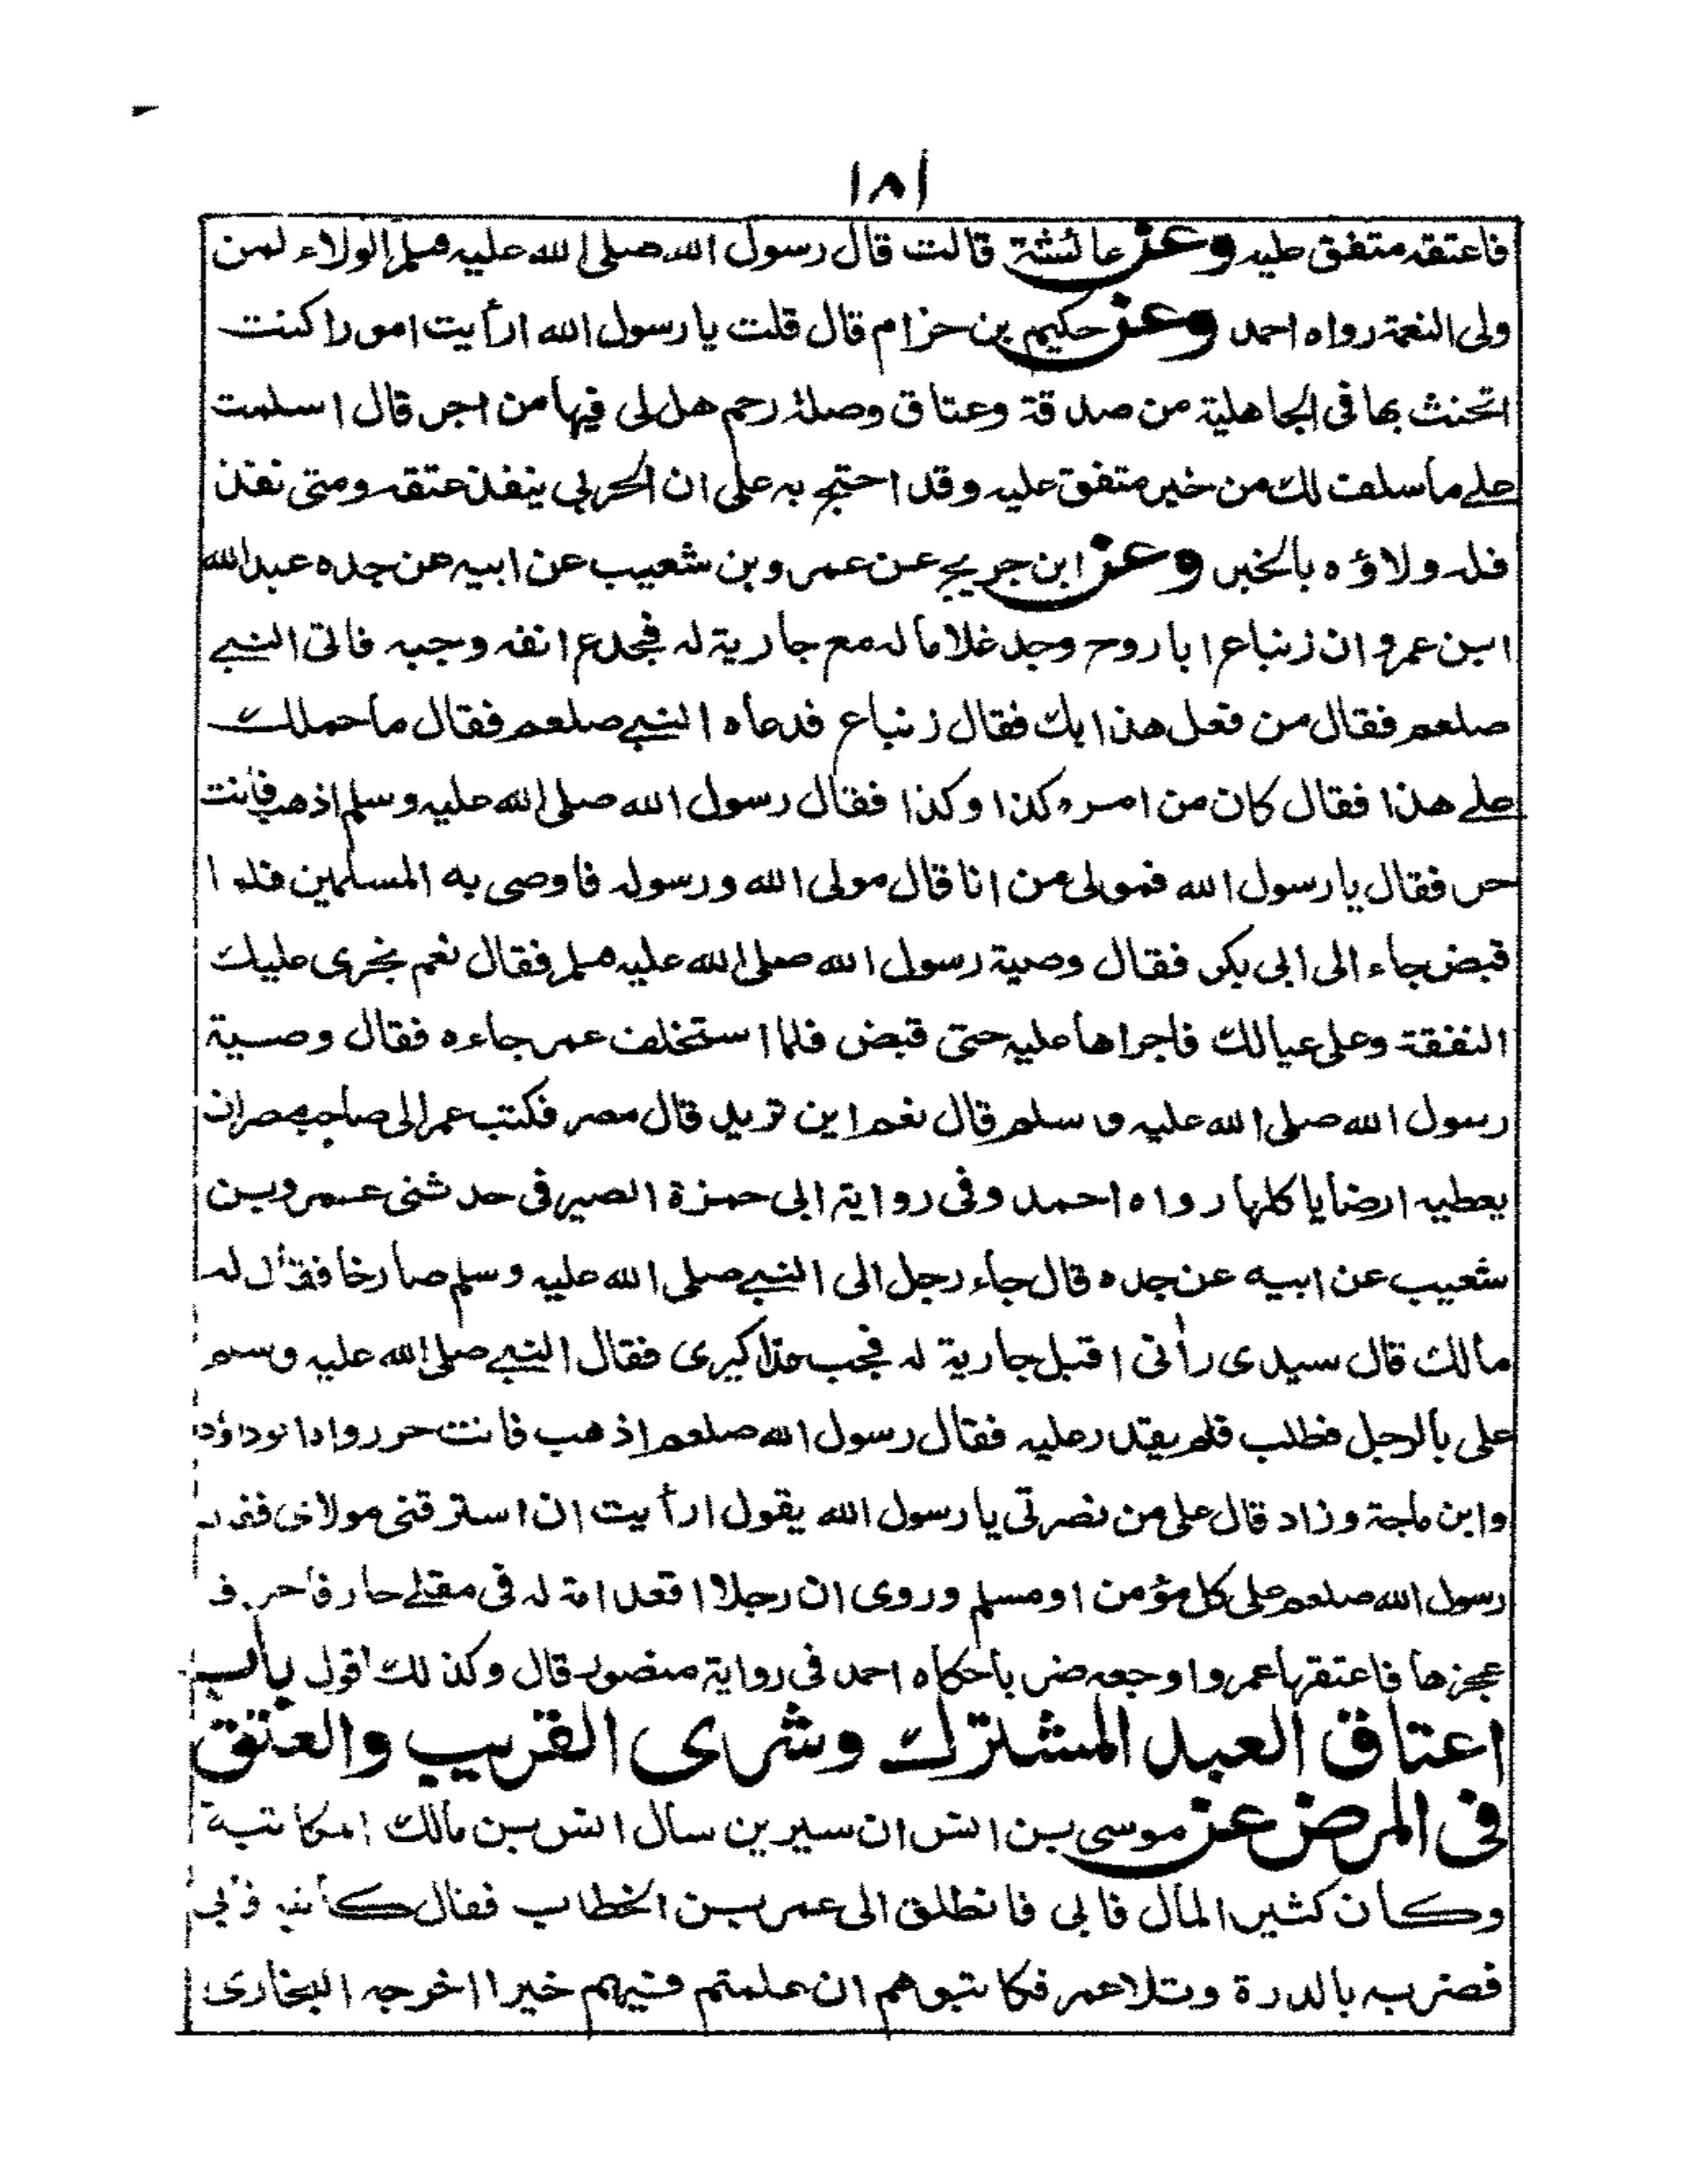 ١٨١
فاعتقه متفق عليه وعن عائشة قالت قال رسول الله صلى الله عليه وسلم الولاء لمن
ولى النعمة رواه احمد وعن حكيم بن حزام قال قلت يا رسول الله ارأيت امورا كنت
اتحنث بها فى الجاهلية من صدقة وعتاق وصلة رحم هل لى فيها من اجر قال اسلمت
على ما سلف لك من خير متفق عليه وقد احتج به على ان الحربى ينفذ عتقه ومتى نفذ
فله ولاؤه بالخبر وعن ابن جريج عن عمرو بن شعيب عن ابيه عن جده عبدالله
ابن عمرو ان زنباع ابا روح وجد غلاما له مع جارية له فجدع انفه وجبه فاتى النبى
صلعم فقال من فعل هذا بك فقال زنباع فدعاه النبى صلعم فقال ما حملك
على هذا فقال كان من امره كذا وكذا فقال رسول الله صلى الله عليه وسلم اذهب فانت
حر فقال يا رسول الله فمولى من انا قال مولى الله ورسوله فاوصى به المسلمين فلما
قبض جاء الى ابى بكر فقال وصية رسول الله صلى الله عليه وسلم فقال نعم نجرى عليك
النفقة وعلى عيالك فاجراها عليه حتى قبض فلما استخلف عمر جاءه فقال وصية
رسول الله صلى الله عليه وسلم قال نعم اين تريد قال مصر فكتب عمر الى صاحب مصر ان
يعطيه ارضا ياكلها رواه احمد وفى رواية ابى حمزة الصيرفى حدثنى عمرو بن
شعيب عن ابيه عن جده قال جاء رجل الى النبى صلى الله عليه وسلم صارخا فقال له
مالك قال سيدى رأنى اقبل جارية له فجب مذاكيرى فقال النبى صلى الله عليه وسلم
على بالرجل فطلب فلم يقدر عليه فقال رسول الله صلعم اذهب فانت حر رواه ابوداؤد
وابن ماجة وزاد قال على من نصرتى يا رسول الله يقول ارأيت ان استرقنى مولاى فقال
رسول الله صلعم على كل مؤمن او مسلم وروى ان رجلا اقعد امة له فى مقلى حار فاحرق
عجزها فاعتقها عمر واوجعه ضربا حكاه احمد فى رواية منصور قال وكذلك اقول باب
اعتاق العبد المشترك وشرى القريب والعتق
فى المرض عن موسى بن انس ان سيرين سأل انس بن مالك المكاتبة
وكان كثير المال فابى فانطلق الى عمر بن الخطاب فقال كاتبه فابى
فضربه بالدرة وتلا عمر فكاتبوهم ان علمتم فيهم خيرا اخرجه البخارى